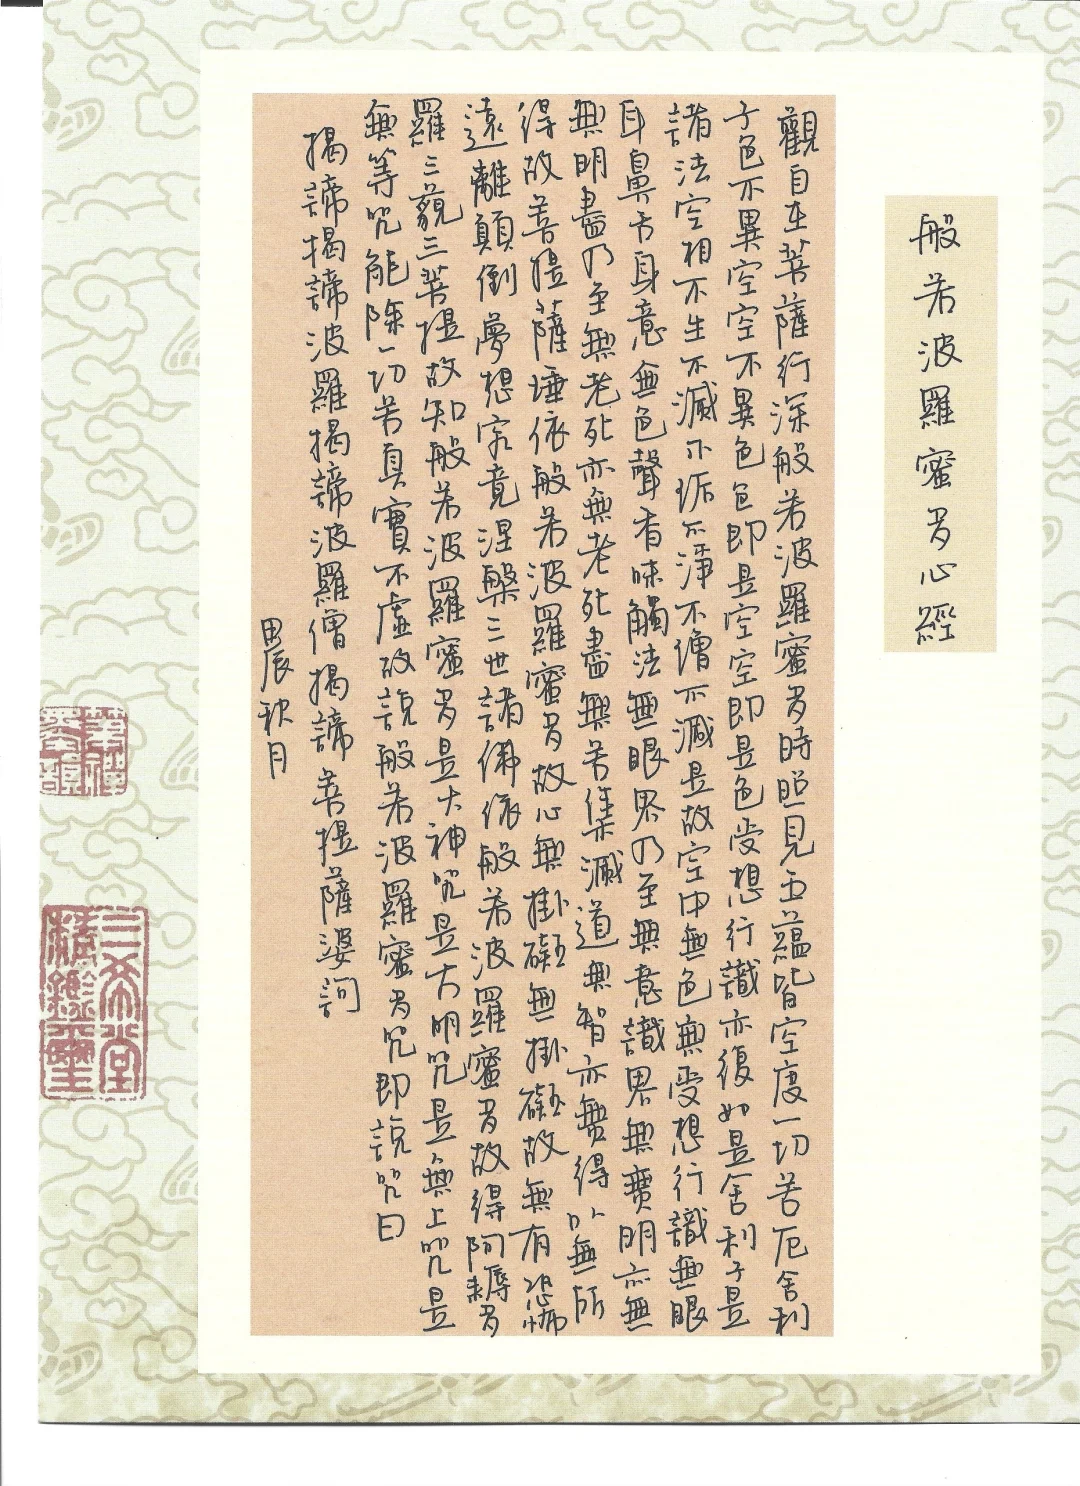 般若波羅蜜多心經
觀自在菩薩行深般若波羅蜜多時照見五蘊皆空度一切苦厄舍利
子色不異空空不異色色即是空空即是色受想行識亦復如是舍利子是
諸法空相不生不滅不垢不淨不增不減是故空中無色無受想行識無眼
耳鼻舌身意無色聲香味觸法無眼界乃至無意識界無無明亦無
無明盡乃至無老死亦無老死盡無苦集滅道無智亦無得以無所
得故菩提薩埵依般若波羅蜜多故心無掛礙無掛礙故無有恐怖
遠離顛倒夢想究竟涅槃三世諸佛依般若波羅蜜多故得阿耨多
羅三藐三菩提故知般若波羅蜜多是大神咒是大明咒是無上咒是
無等咒能除一切苦真實不虛故說般若波羅蜜多咒即說咒曰
揭諦揭諦波羅揭諦波羅僧揭諦菩提薩婆訶
甲辰秋月
三希堂
精鑑璽